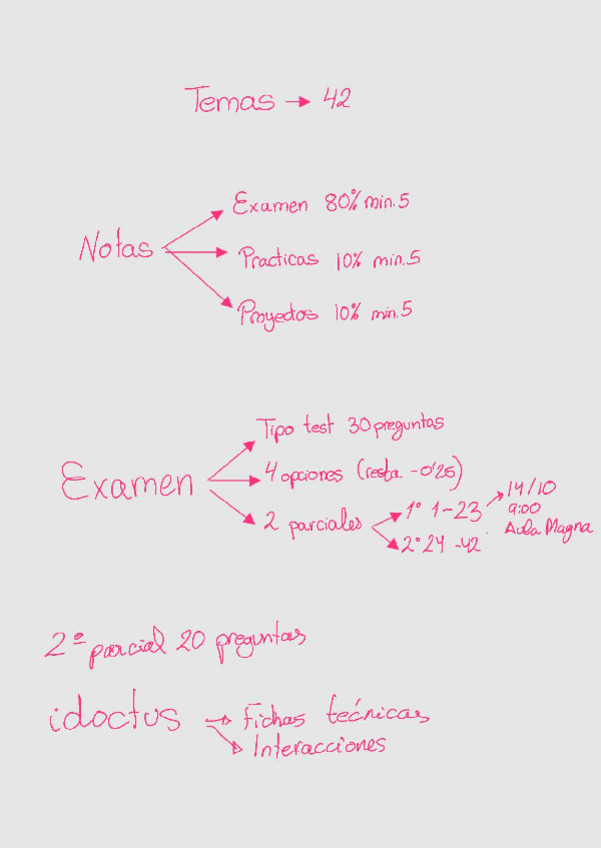 Temas → 42
Notas
Examen 80% min.5
Practicas 10% min.5
Proyectos 10% min.5
Examen
Tipo test 30 preguntas
4 opciones (resta -0'25)
2 parciales
1º 1-23
14/10
9:00
Aula Magna
2º 24-42
2º parcial 20 preguntas
idoctus
Fichas técnicas
Interacciones